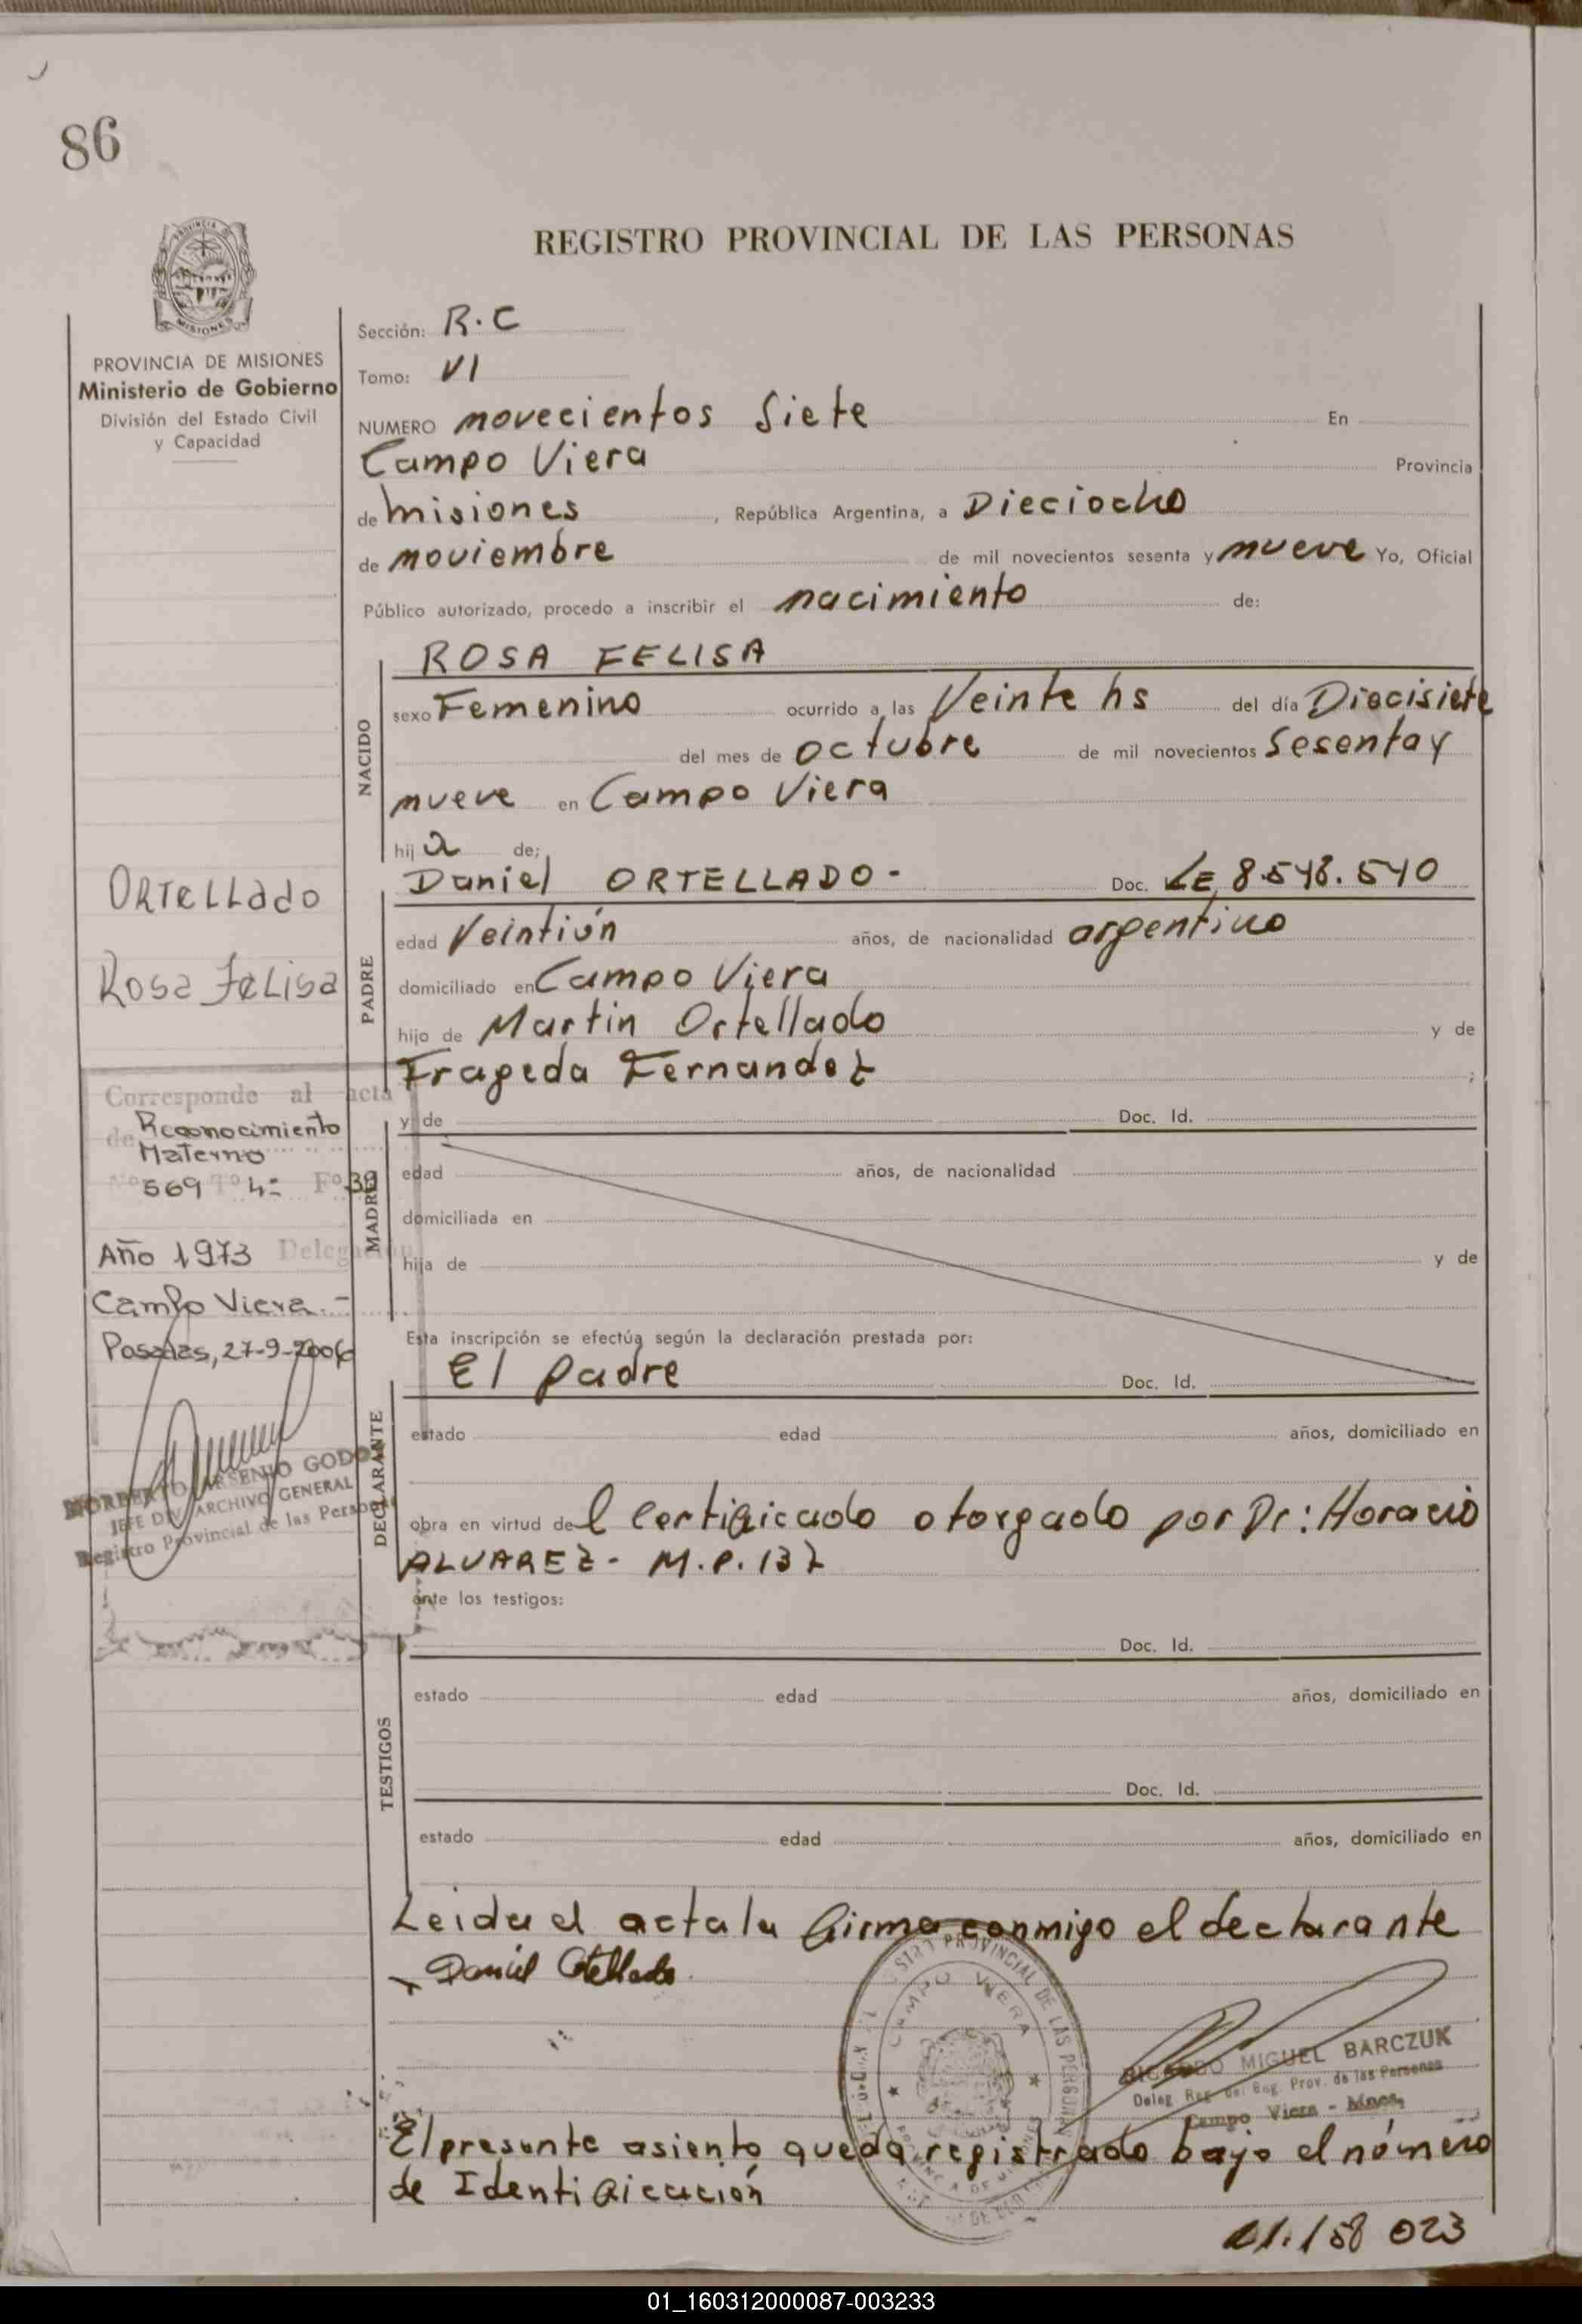 86
REGISTRO PROVINCIAL DE LAS PERSONAS
PROVINCIA DE MISIONES
Ministerio de Gobierno
División del Estado Civil
y Capacidad
Sección: R.C
Tomo: VI
NUMERO novecientos Siete En
Campo Viera Provincia
de misiones, República Argentina, a Dieciocho
de noviembre de mil novecientos sesenta y nueve Yo, Oficial
Público autorizado, procedo a inscribir el nacimiento de:
NACIDO
ROSA FELISA
sexo Femenino ocurrido a las Veinte hs del día Diecisiete
del mes de octubre de mil novecientos Sesenta y
nueve en Campo Viera
hija de;
Ortellado
Rosa Felisa
PADRE
Daniel ORTELLADO- Doc. LE 8.548.540
edad Veintiún años, de nacionalidad argentino
domiciliado en Campo Viera
hijo de Martin Ortellado y de
Frageda Fernandez ;
Corresponde al acta
de Reconocimiento
Materno
Nº 569 Tº 4º Fº 39
Año 1973 Delegación
Campo Viera.-
Posadas, 27-9-2006
NORBERTO ARSENIO GODOY
JEFE DIV ARCHIVO GENERAL
Registro Provincial de las Personas
MADRE
y de Doc. Id.
edad años, de nacionalidad
domiciliada en
hija de y de
Esta inscripción se efectúa según la declaración prestada por:
DECLARANTE
El padre Doc. Id.
estado edad años, domiciliado en
obra en virtud del Certificado otorgado por Dr: Horacio
ALVAREZ- M.P. 137
ante los testigos:
TESTIGOS
Doc. Id.
estado edad años, domiciliado en
Doc. Id.
estado edad años, domiciliado en
Leida el acta la firma conmigo el declarante
Daniel Ortellado
PROVINCIAL DE LAS PERSONAS
CAMPO VIERA
PROVINCIA DE MISIONES
RICARDO MIGUEL BARCZUK
Deleg. Reg. del Reg. Prov. de las Personas
Campo Viera - Mnes,
El presente asiento queda registrado bajo el número
de Identificación
21.158 023
01_160312000087-003233